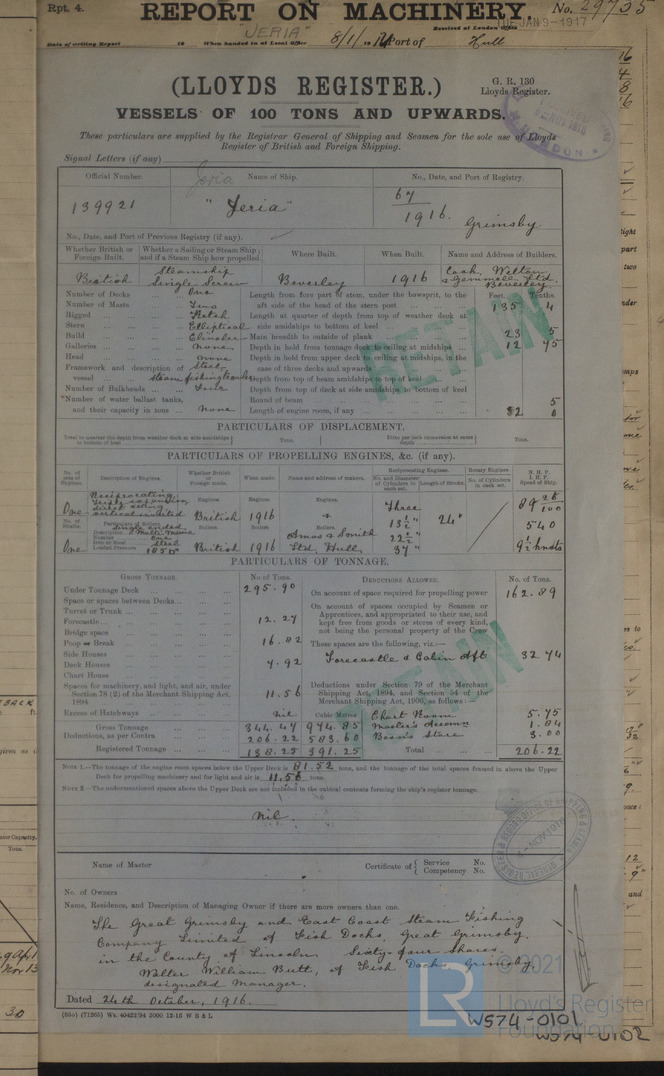 Rpt. 4.
REPORT ON MACHINERY.
No. 29735
"JERIA"
Received at London Office
TUE JAN 9 - 1917
Date of writing Report 19 When handed in at Local Office 8/1/1917 Port of Hull
(LLOYDS REGISTER.)
G. R. 130
Lloyds Register.
VESSELS OF 100 TONS AND UPWARDS.
These particulars are supplied by the Registrar General of Shipping and Seamen for the sole use of Lloyds
Register of British and Foreign Shipping.
Signal Letters (if any)
Official Number. Jeria Name of Ship. No., Date, and Port of Registry.
139921 "Jeria" 67 1916. Grimsby
No., Date, and Port of Previous Registry (if any).
Whether British or Foreign Built. Whether a Sailing or Steam Ship; and if a Steam Ship how propelled. Where Built. When Built. Name and Address of Builders.
British Steamship Single Screw Beverley 1916 Cook, Welton & Gemmell Ltd. Beverley
Number of Decks One
Number of Masts Two
Rigged Ketch
Stern Elliptical
Build Clincher
Galleries none
Head none
Framework and description of vessel Steel Steam fishing trawler
Number of Bulkheads Four
Number of water ballast tanks,
and their capacity in tons None
Feet. Tenths
Length from fore part of stem, under the bowsprit, to the
aft side of the head of the stern post 135 4
Length at quarter of depth from top of weather deck at
side amidships to bottom of keel
Main breadth to outside of plank 23 5
Depth in hold from tonnage deck to ceiling at midships 12 45
Depth in hold from upper deck to ceiling at midships, in the
case of three decks and upwards
Depth from top of beam amidships to top of keel
Depth from top of deck at side amidships to bottom of keel
Round of beam 5
Length of engine room, if any 32 0
RETAIN
PARTICULARS OF DISPLACEMENT.
Total to quarter the depth from weather deck at side amidships to bottom of keel Tons. Ditto per inch immersion at same depth Tons.
PARTICULARS OF PROPELLING ENGINES, &c. (if any).
No. of sets of Engines. Description of Engines. Whether British or Foreign made. When made. Name and address of makers. Reciprocating Engines. Rotary Engines. N.H.P. I.H.P. Speed of Ship.
No. and Diameter of Cylinders in each set. Length of Stroke. No. of Cylinders in each set.
One Reciprocating, Triple expansion direct acting vertical inverted
Engines. British Engines. 1916 Engines.
Three 13½" 22½" 37" 24" 89 26/100 540 9½ knots
No. of Shafts. One Particulars of Boilers. Single ended Description Multi. Marine Number One Iron or Steel Steel Loaded Pressure 185 lb
Boilers. British Boilers. 1916 Boilers. Amos & Smith Ltd. Hull
PARTICULARS OF TONNAGE.
GROSS TONNAGE. No of Tons.
Under Tonnage Deck 295.90
Space or spaces between Decks
Turret or Trunk
Forecastle 12.27
Bridge space
Poop or Break 16.82
Side Houses
Deck Houses 7.92
Chart House
Spaces for machinery, and light, and air, under
Section 78 (2) of the Merchant Shipping Act,
1894 11.56
Excess of Hatchways nil Cubic Metres
Gross Tonnage 344.47 974.85
Deductions, as per Contra 206.22 583.60
Registered Tonnage 138.25 391.25
DEDUCTIONS ALLOWED. No. of Tons.
On account of space required for propelling power 162.89
On account of spaces occupied by Seamen or
Apprentices, and appropriated to their use, and
kept free from goods or stores of every kind,
not being the personal property of the Crew
These spaces are the following, viz.:—
Forecastle & Cabin Aft 32 74
Deductions under Section 79 of the Merchant
Shipping Act, 1894, and Section 54 of the
Merchant Shipping Act, 1906, as follows:
Chart Room 5.75
Master's Accomm. 1.84
Bosn's Store 3.00
Total 206.22
RETAIN
NOTE 1.—The tonnage of the engine room spaces below the Upper Deck is 81.52 tons, and the tonnage of the total spaces framed in above the Upper
Deck for propelling machinery and for light and air is 11.56 tons.
NOTE 2.—The undermentioned spaces above the Upper Deck are not included in the cubical contents forming the ship's register tonnage.
Nil.
Name of Master Certificate of { Service No.
Competency No.
No. of Owners
Name, Residence, and Description of Managing Owner if there are more owners than one.
The Great Grimsby and East Coast Steam Fishing
Company Limited of Fish Docks, Great Grimsby.
in the County of Lincoln Sixty-four Shares.
Walter William Butt, of Fish Docks, Grimsby,
designated Manager.
Dated 24th October, 1916.
© 2021
LR
Lloyd's Register
Foundation
W574-0101
W574-0102